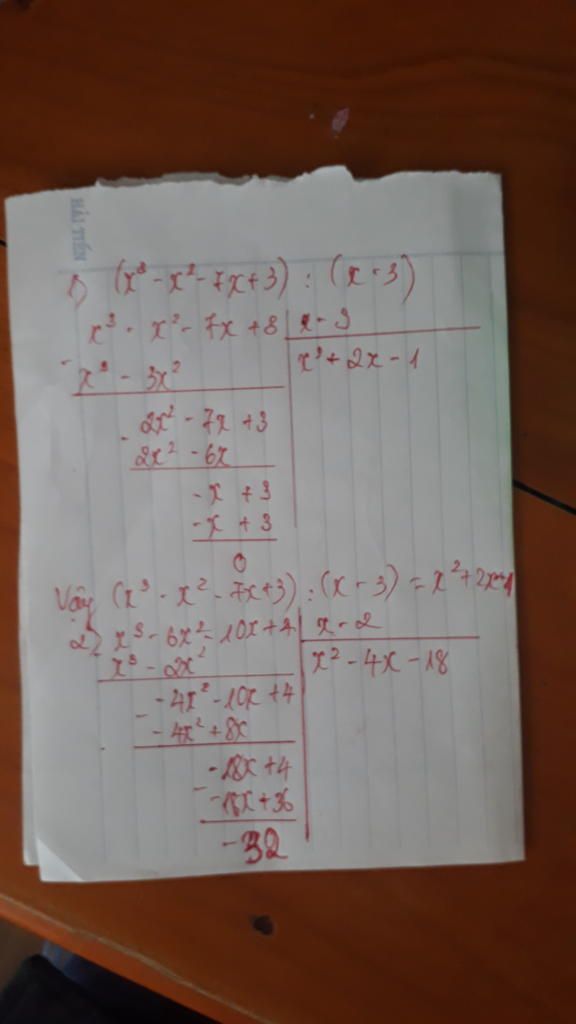 TIẾN
1) (x³ - x² - 7x + 3) : (x - 3)
x³ - x² - 7x + 8 | x - 3
- x³ - 3x² | x² + 2x - 1
- 2x² - 7x + 3
2x² - 6x
- -x + 3
-x + 3
0
Vậy (x³ - x² - 7x + 3) : (x - 3) = x² + 2x - 1
2) x³ - 6x² - 10x + 4 | x - 2
- x³ - 2x² | x² - 4x - 18
- -4x² - 10x + 4
-4x² + 8x
- -18x + 4
-18x + 36
-32